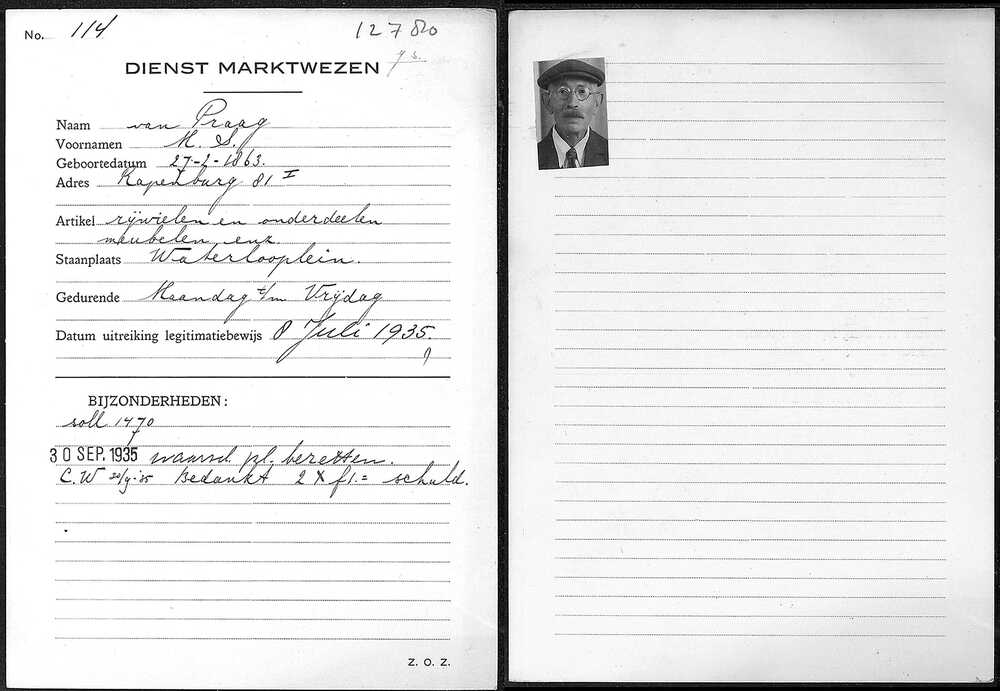 No. 114 12780
DIENST MARKTWEZEN
Naam van Praag
Voornamen M. S.
Geboortedatum 27-2-1863.
Adres Rapenburg 81 I
Artikel rijwielen en onderdeelen
meubelen enz.
Staanplaats Waterlooplein.
Gedurende Maandag t/m Vrijdag
Datum uitreiking legitimatiebewijs 8 Juli 1935.
BIJZONDERHEDEN:
soll 1470
30 SEP. 1935 waarsch. pl. bezetten.
C.W 30/9-35 Bedankt 2 X f1.= schuld.
Z. O. Z.